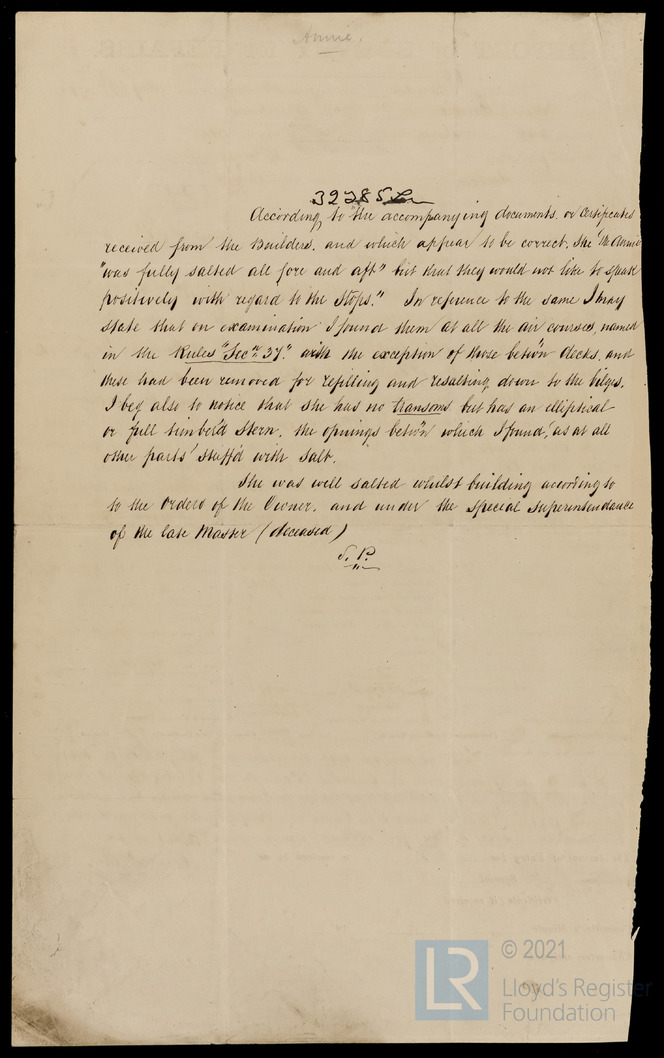 Annie.
32285 Lon
According to the accompanying documents. or Certificates
received from the Builders. and which appear to be correct, she "the Annie"
"was fully salted all fore and aft" but that they would not like to speak
positively with regard to the Stops." In reference to the same I may
state that on examination I found them at all the air courses, named
in the Rules "Secn. 37." with the exception of those betw'n decks. and
these had been removed for refilling and resalting down to the bilges.
I beg also to notice that she has no transoms but has an elliptical
or full timber'd Stern. the openings betw'n which I found, 'as at all
other parts' stuff'd with Salt.
She was well salted whilst building according to
to the Orders of the Owner. and under the special Superintendance
of the late Master (deceased)
S. P.
LR
© 2021
Lloyd's Register
Foundation